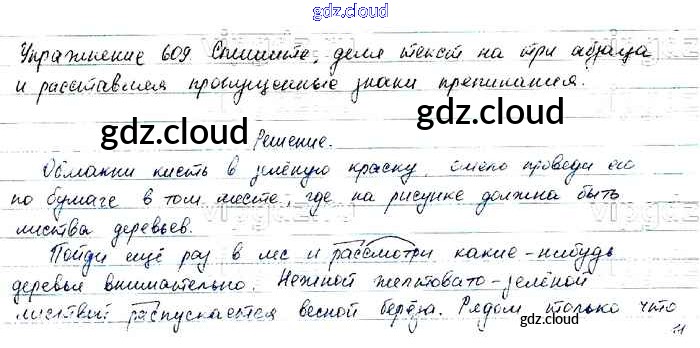 gdz.cloud
Упражнение 609 Спишите, деля текст на три абзаца
и расставляя пропущенные знаки препинания.
gdz.cloud gdz.cloud
Решение.
Обмакни кисть в зелёную краску, смело проведи ею
по бумаге в том месте, где на рисунке должна быть
листва деревьев.
Пойди ещё раз в лес и рассмотри какие-нибудь
деревья внимательно. Нежной желтовато-зелёной
листвой распускается весной берёза. Рядом только что
gdz.cloud